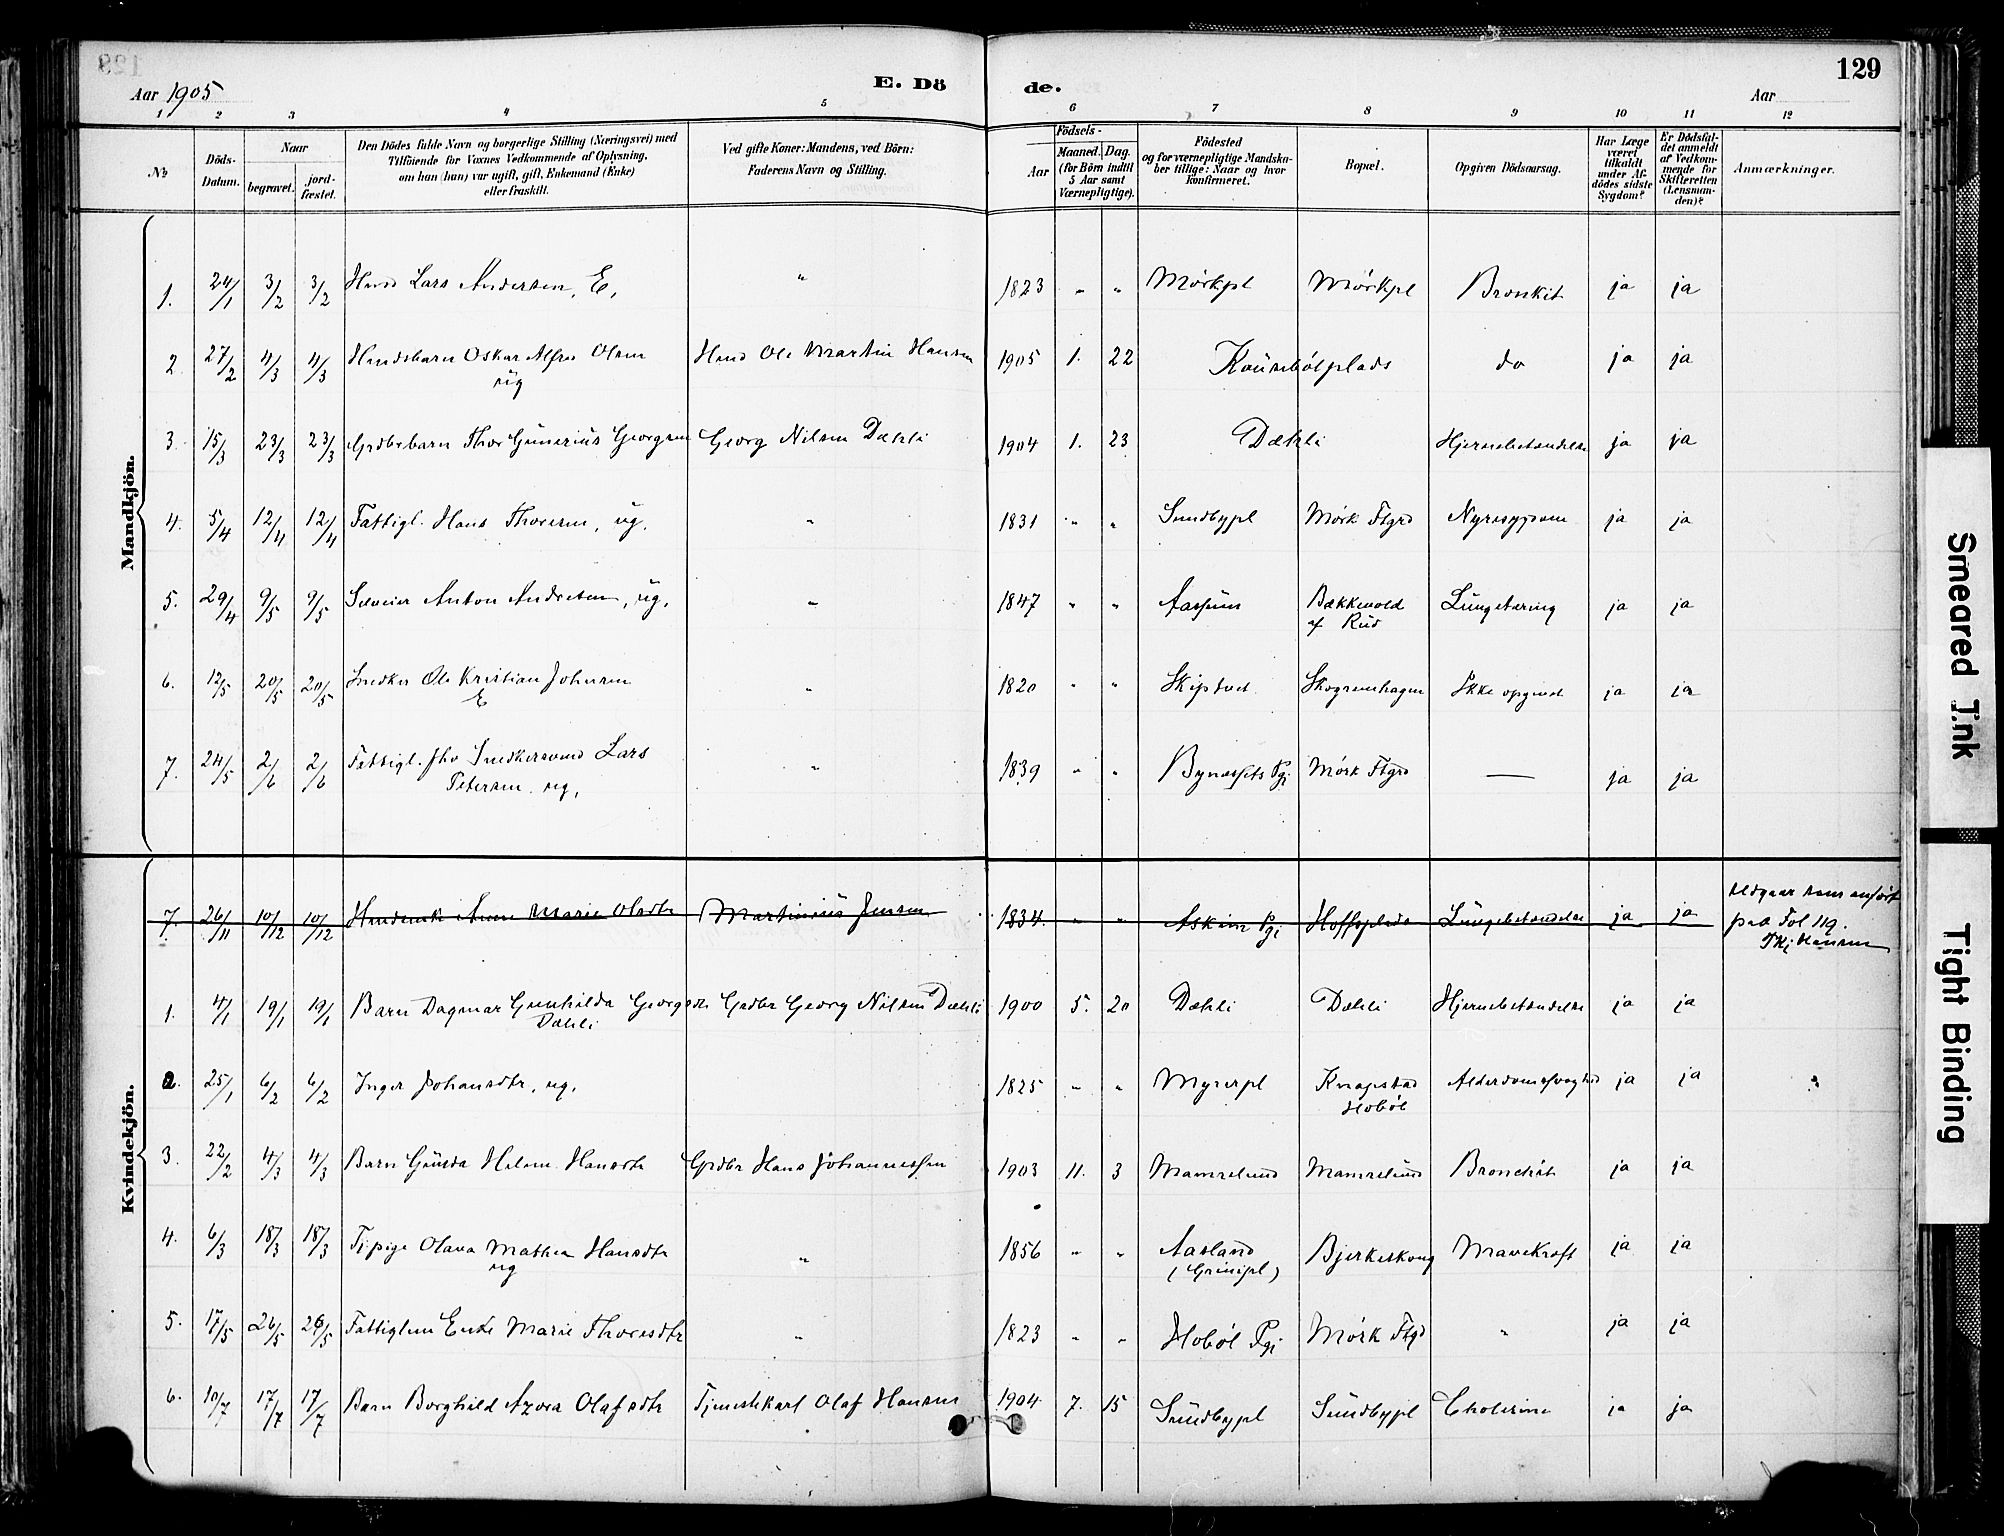 Aar 1905
E. Dö
de.
Aar
129
1 2 3 4 5 6 7 8 9 10 11 12
No
Döds-
Datum.
Naar
begravet.
jord-
fæstet.
Den Dödes fulde Navn og borgerlige Stilling (Næringsvei) med
Tilföiende for Voxnes Vedkommende af Oplysning,
om han (hun) var ugift, gift, Enkemand (Enke)
eller fraskilt.
Ved gifte Koner: Mandens, ved Börn:
Faderens Navn og Stilling.
Födsels-
Aar
Maaned.
Dag.
(for Börn indtil
5 Aar samt
Værnepligtige).
Födested
og for værnepligtige Mandska-
ber tillige: Naar og hvor
konfirmeret.
Bopæl.
Opgiven Dödsaarsag.
Har Læge
været
tilkaldt
under Af-
dödes sidste
Sygdom?
Er Dödsfal-
det anmeldt
af Vedkom-
mende for
Skifteretten
(Lensman-
den)?
Anmærkninger.
Mandkjön.
1. 24/1 3/2 3/2 Husm Lars Andersen, E, " 1823 " " Mörkpl Mörkpl Bronkit ja ja
2 27/2 4/3 4/3 Husmdsbarn Oskar Alfred Olsen Husmd Ole Martin Hansen 1905 1. 22 plads do ja ja
ug
3 15/3 23/3 23/3 Grdbrbarn Thor Gunerius Georgsen Georg Nilsen Dæhli 1904 1. 23 Dæhli Hjernebetændelse ja ja
4. 5/4 12/4 12/4 Fattigl. Hans Thoresen, ug. " 1831 " " Sundbypl Mörk Ftgrd Nyresygdom ja ja
5. 29/4 9/5 9/5 Anton Andresen, ug. " 1847 " " Bækkevold Lungetæring ja ja
af Rud
6. 12/5 20/5 20/5 Snedker Ole Kristian Johnsen " 1820 " " Skiptvet Skogrenhagen Ikke opgivet ja ja
E
7. 24/5 2/6 2/6 Fattigl. fhv Snedkersvend Lars " 1839 " " Bynæssets Pgj Mörk Ftgrd — ja ja
Petersen ug,
Kvindekjön.
7. 26/11 10/12 10/12 Husmdenk Anne Marie Olsdtr Martinius Jensen 1834 " " Askim Pgj Hoffsplads Lungebetændelse ja ja Udgaar som anfört
paa Fol 119.
Hansen
1. 4/1 19/1 19/1 Barn Dagmar Gunhilda Georgsdtr Grdbr Georg Nilsen Dæhli 1900 5. 20 Dæhli Dæhli Hjernebetændelse ja ja
Dæhli
2. 25/1 6/2 6/2 Inger Johansdtr, ug, 1825 " " Myrerpl Knapstad Alderdomssvaghed ja ja "
Hobøl
3. 22/2 4/3 4/3 Barn Hansdtr Grdbr Hans Johannessen 1903 11. 3 Mamrelund Mamrelund Bronchit ja ja
4. 6/3 18/3 18/3 Tjpige Olava Mathea Hansdtr " 1856 " " Aasland Bjerkeskoug Mavekræft ja ja
ug
(Grinipl)
5. 17/5 26/5 26/5 Fattiglem Enke Marie Thoresdtr " 1823 " " Hobøl Pgj Mörk Ftgd " ja ja
6. 10/7 17/7 17/7 Barn Borghild Azora Olafsdtr Tjenestekarl Olaf Hansen 1904 7. 15 Sundbypl Sundbypl Cholerine ja ja
Smeared Ink
Tight Binding